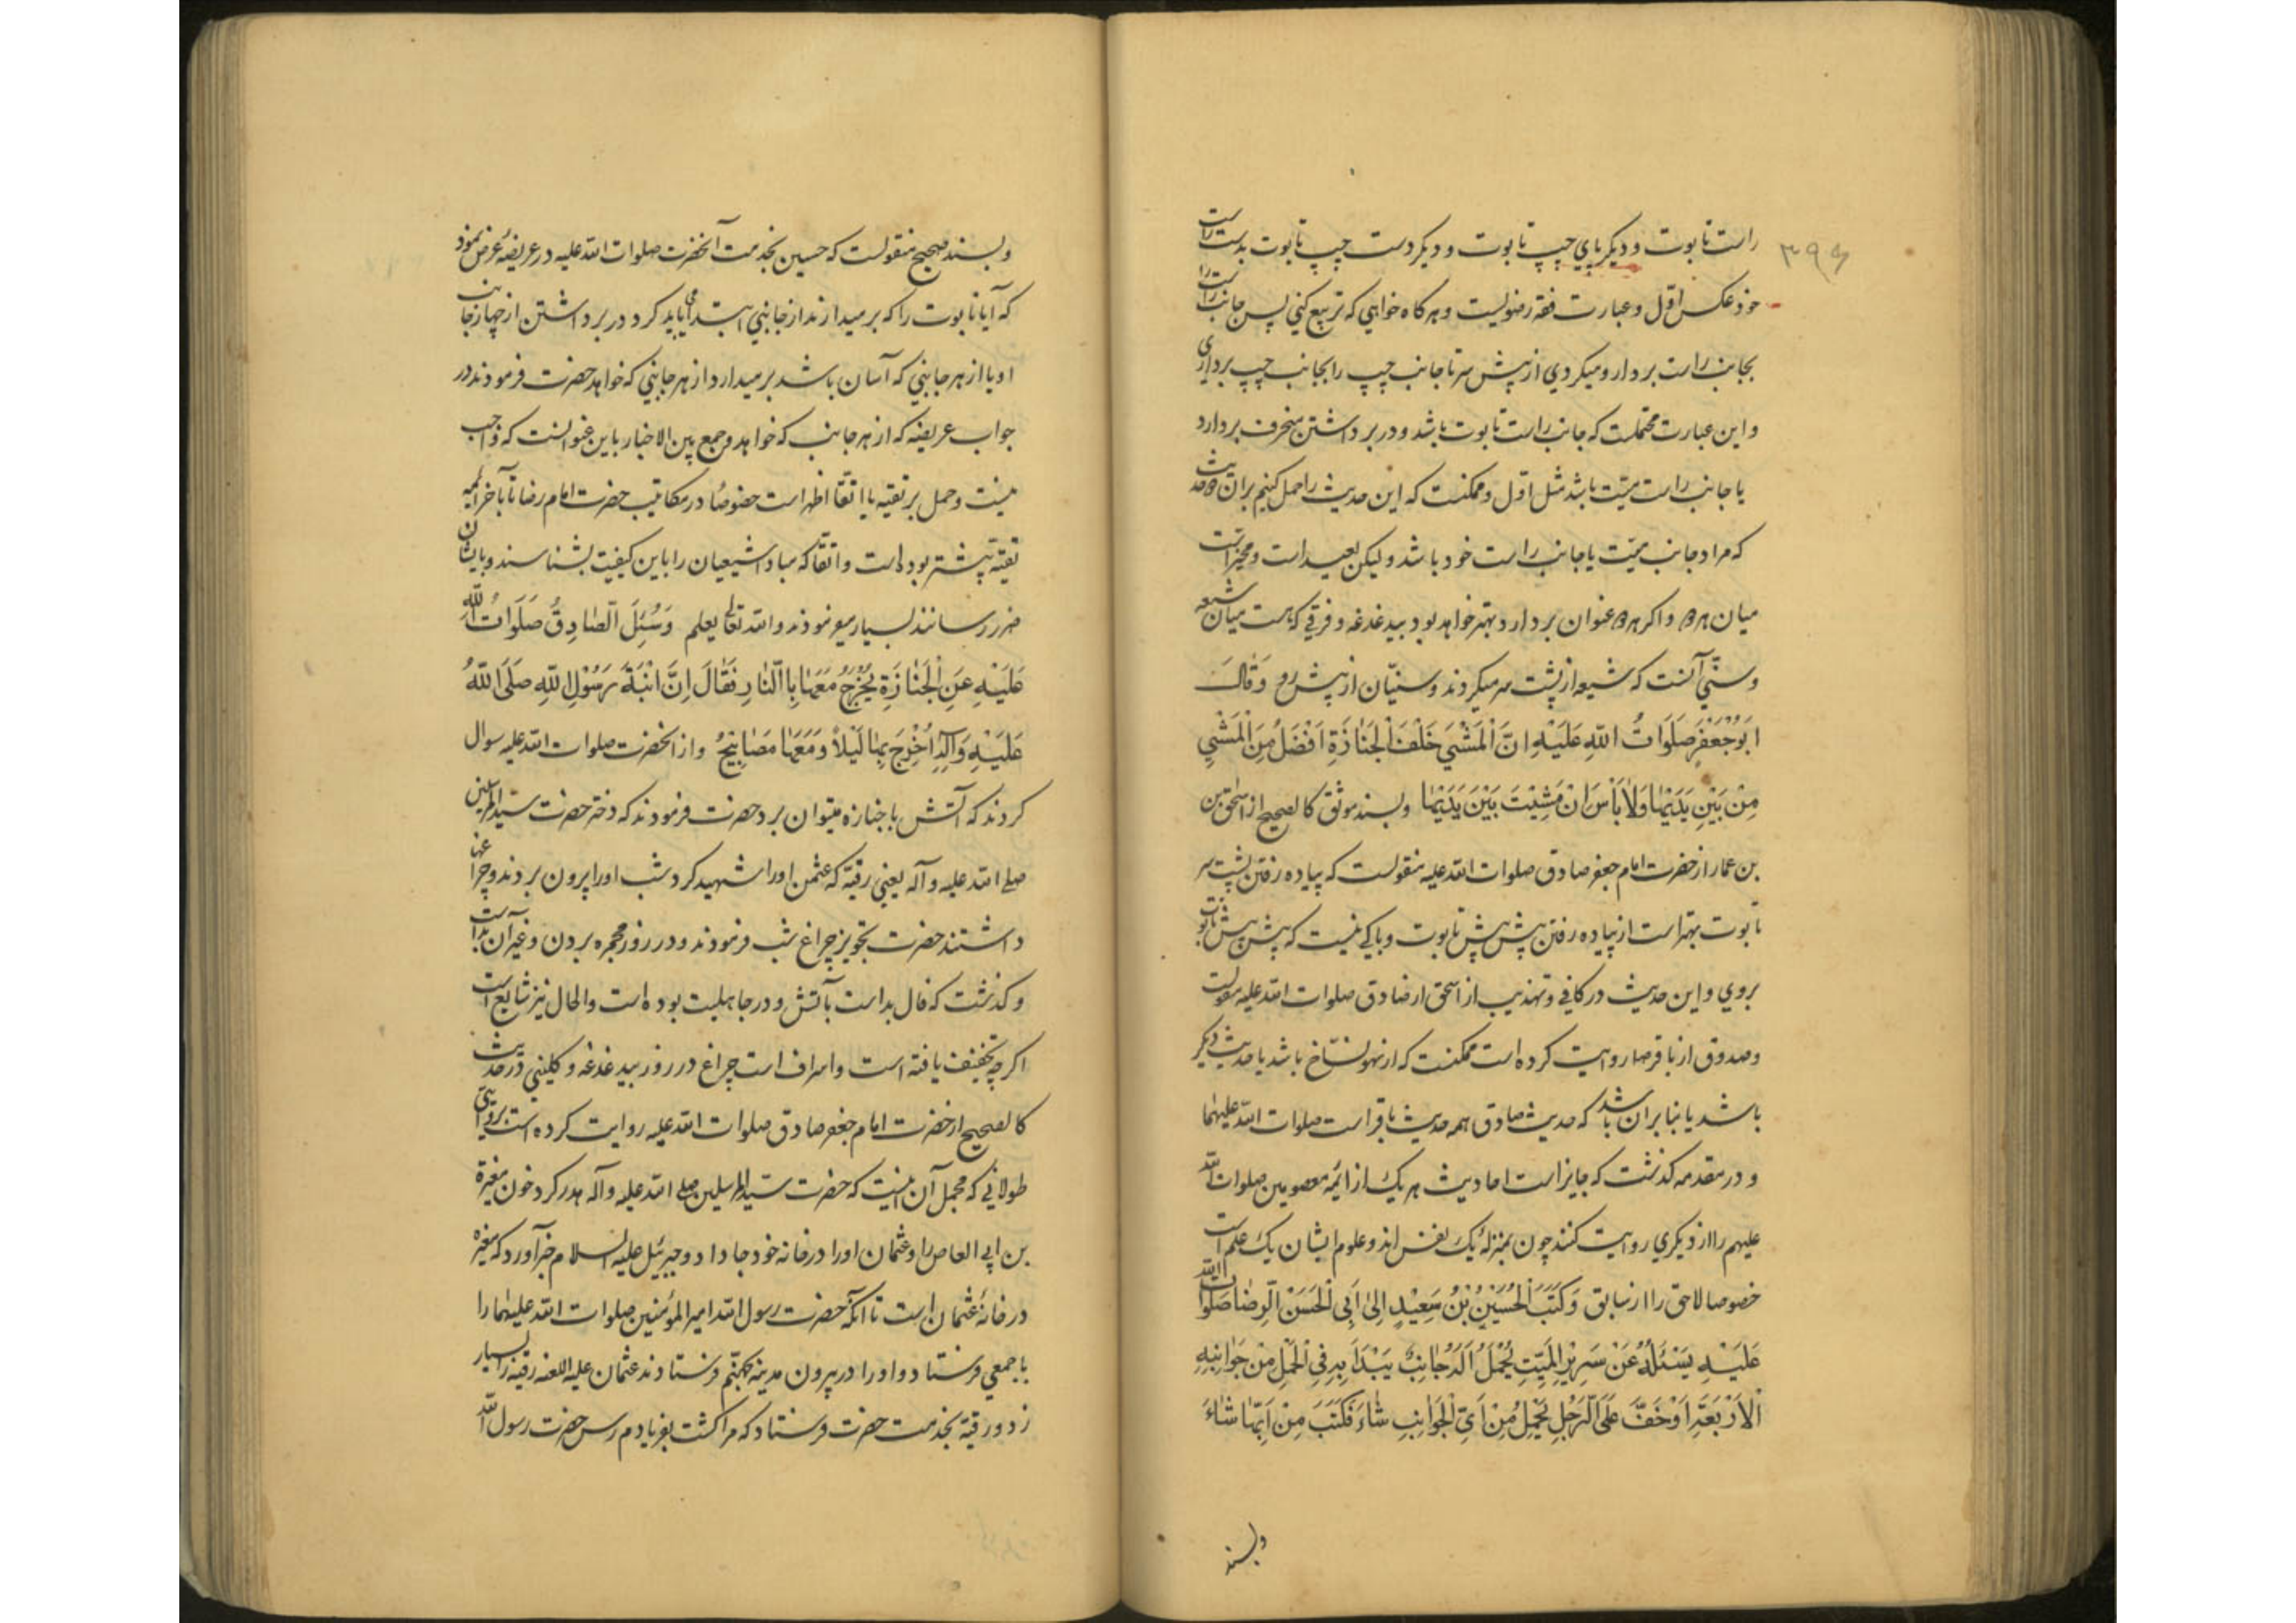 ۳۹۶
راست تابوت و دیگر پای چپ تابوت و دیگر دست چپ تابوت بدست راست
خود عکس اول و عبارت فقه رضویست و هرگاه خواهی که تربیع کنی پس جانب راست را
بجانب راست بردار و میگردی از پیش سر تا جانب چپ را بجانب چپ برداری
و این عبارت محتملست که جانب راست تابوت باشد و در برداشتن منحرف بردارد
یا جانب راست میّت باشد مثل اوّل و ممکنست که این حدیث را حمل کنیم بر ان دو حدیث
که مراد جانب میّت یا جانب راست خود باشد و لیکن بعید است و مخیر است
میان هر دو و اگر بهر دو عنوان بردارد بهتر خواهد بود بیدغدغه و فرقی که هست میان شیعه
و سنّی آنست که شیعه از پشت سر میگردند و سنیّان از پیش رو وَ قَالَ
اَبُوجَعْفَرٍ صَلَوَاتُ اللّٰهِ عَلَیْهِ اِنَّ الْمَشْیَ خَلْفَ الْجَنَازَةِ اَفْضَلُ مِنَ الْمَشْیِ
مِنْ بَیْنِ یَدَیْهَا وَلَا بَأْسَ اِنْ مَشَیْتَ بَیْنَ یَدَیْهَا و بسند موثق کالصحیح از اسحق بن
بن عمار از حضرت امام جعفر صادق صلوات الله علیه منقولست که پیاده رفتن پشت سر
تابوت بهتر است از پیاده رفتن پیش پیش تابوت و باکی نیست که پیش پیش تابوت
بروی و این حدیث در کافی و تهذیب از اسحق از صادق صلوات الله علیه منقولست
و صدوق از باقر صلوات روایت کرده است ممکنست که از سهو نسّاخ باشد یا حدیث دیگر
باشد یا بنابر ان باشد که حدیث صادق همه حدیث باقر است صلوات الله علیهما
و در مقدمه گذشت که جایز است احادیث هر یک از ائمه معصومین صلوات الله
علیهم را از دیگری روایت کنند چون بمنزله یک نفس اند و علوم ایشان یک علم است
خصوصا لاحق را از سابق وَ کَتَبَ الْحُسَیْنُ بْنُ سَعِیْدٍ اِلیٰ اَبِی الْحَسَنِ الرِّضَا صَلَوَاتُ اللّٰهِ
عَلَیْهِ یَسْئَلُهُ عَنْ سَرِیْرِ الْمَیِّتِ یُحْمَلُ اَلَهُ جَانِبٌ یَبْدَأُ بِهِ فِی الْحَمْلِ مِنْ جَوَانِبِهِ
الْاَرْبَعَةِ اَوْ خَفَّ عَلَی الرَّجُلِ یَحْمِلُ مِنْ اَیِّ الْجَوَانِبِ شَاءَ فَکَتَبَ مِنْ اَیِّهَا شَاءَ
و بسند
و بسند صحیح منقولست که حسین بخدمت آنحضرت صلوات الله علیه در عریضهٔ عرض نمود
که آیا تابوت را که بر میدارند از جانبی ابتدا می باید کرد در برداشتن از چهار جانب
او یا از هر جانبی که آسان باشد بر میدارد از هر جانبی که خواهد حضرت فرمودند در
جواب عریضه که از هر جانب که خواهد و جمع بین الاخبار باین عنوانست که واجب
نیست و حمل بر تقیه یا اتقا اظهر است خصوصا در مکاتیب حضرت امام رضا تا باخر ائمه
تقیه بیشتر بوده است و اتقا که مبادا شیعیان را باین کیفیت بشناسند و بایشان
ضرر رسانند بسیار میفرمودند و الله تعالی یعلم وَ سُئِلَ الصَّادِقُ صَلَوَاتُ اللّٰهِ
عَلَیْهِ عَنِ الْجَنَازَةِ یُخْرَجُ مَعَهَا بِالنَّارِ فَقَالَ اِنَّ ابْنَةَ رَسُوْلِ اللّٰهِ صَلَّی اللّٰهُ
عَلَیْهِ وَ آلِهِ اُخْرِجَ بِهَا لَیْلاً وَ مَعَهَا مَصَابِیْحُ و از آنحضرت صلوات الله علیه سوال
کردند که آتش با جنازه میتوان برد حضرت فرمودند که دختر حضرت سیّد المرسلین
صلی الله علیه و آله یعنی رقیّه که عثمن اورا شهید کرد شب اورا بیرون بردند و چراغها
داشتند حضرت تجویز چراغ شب فرمودند و در روز مجمره بردن و غیر آن بد است
و گذشت که فال بد است بآتش و در جاهلیت بوده است و الحال نیز شایع است
اگرچه تخفیف یافته است و اسراف است چراغ در روز بیدغدغه و کلینی در حدیث
کالصحیح از حضرت امام جعفر صادق صلوات الله علیه روایت کرده است بروایتی
طولانی که مجمل آن اینست که حضرت سیّد المرسلین صلی الله علیه و آله هدر کرد خون مغیرة
بن ابی العاص را و عثمان اورا در خانه خود جا داد و جبرئیل علیه السلام خبر آورد که مغیره
در خانهٔ عثمان است تا آنکه حضرت رسول الله امیر المؤمنین صلوات الله علیهما را
با جمعی فرستاد و اورا در بیرون مدینه بجهنّم فرستادند عثمان علیه اللعنه رقیه را بسیار
زد و رقیّه بخدمت حضرت فرستاد که مرا کشت بفریادم رس حضرت رسول الله